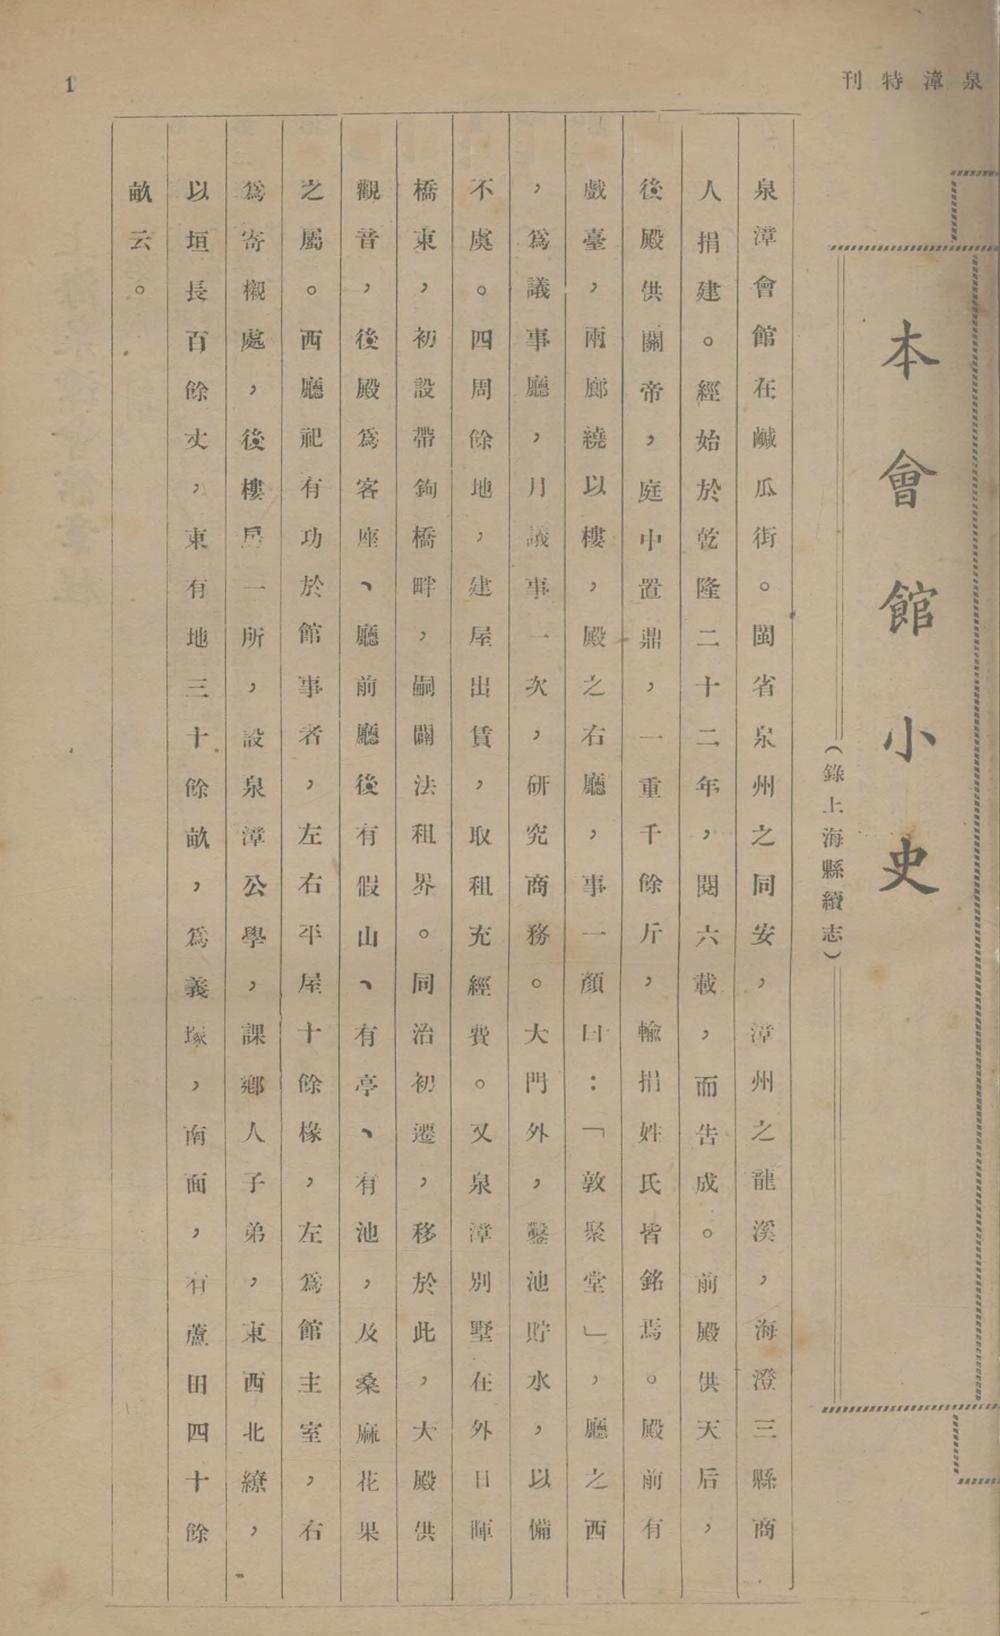 泉漳特刊
1
本會館小史
（錄上海縣續志）
泉漳會館在鹹瓜街。閩省泉州之同安，漳州之龍溪，海澄三縣商
人捐建。經始於乾隆二十二年，閱六載，而告成。前殿供天后，
後殿供關帝，庭中置鼎，一重千餘斤，輸捐姓氏皆銘焉。殿前有
戲臺，兩廊繞以樓，殿之右廳，事一顏曰：「敦聚堂」，廳之西
，爲議事廳，月議事一次，研究商務。大門外，鑿池貯水，以備
不虞。四周餘地，建屋出賃，取租充經費。又泉漳別墅在外日暉
橋東，初設帶鉤橋畔，嗣闢法租界。同治初遷，移於此，大殿供
觀音，後殿爲客座、廳前廳後有假山、有亭、有池，及桑麻花果
之屬。西廳祀有功於館事者，左右平屋十餘椽，左爲館主室，右
爲寄櫬處，後樓房一所，設泉漳公學，課鄉人子弟，東西北繚，
以垣長百餘丈，東有地三十餘畝，爲義塚，南面，有蘆田四十餘
畝云。